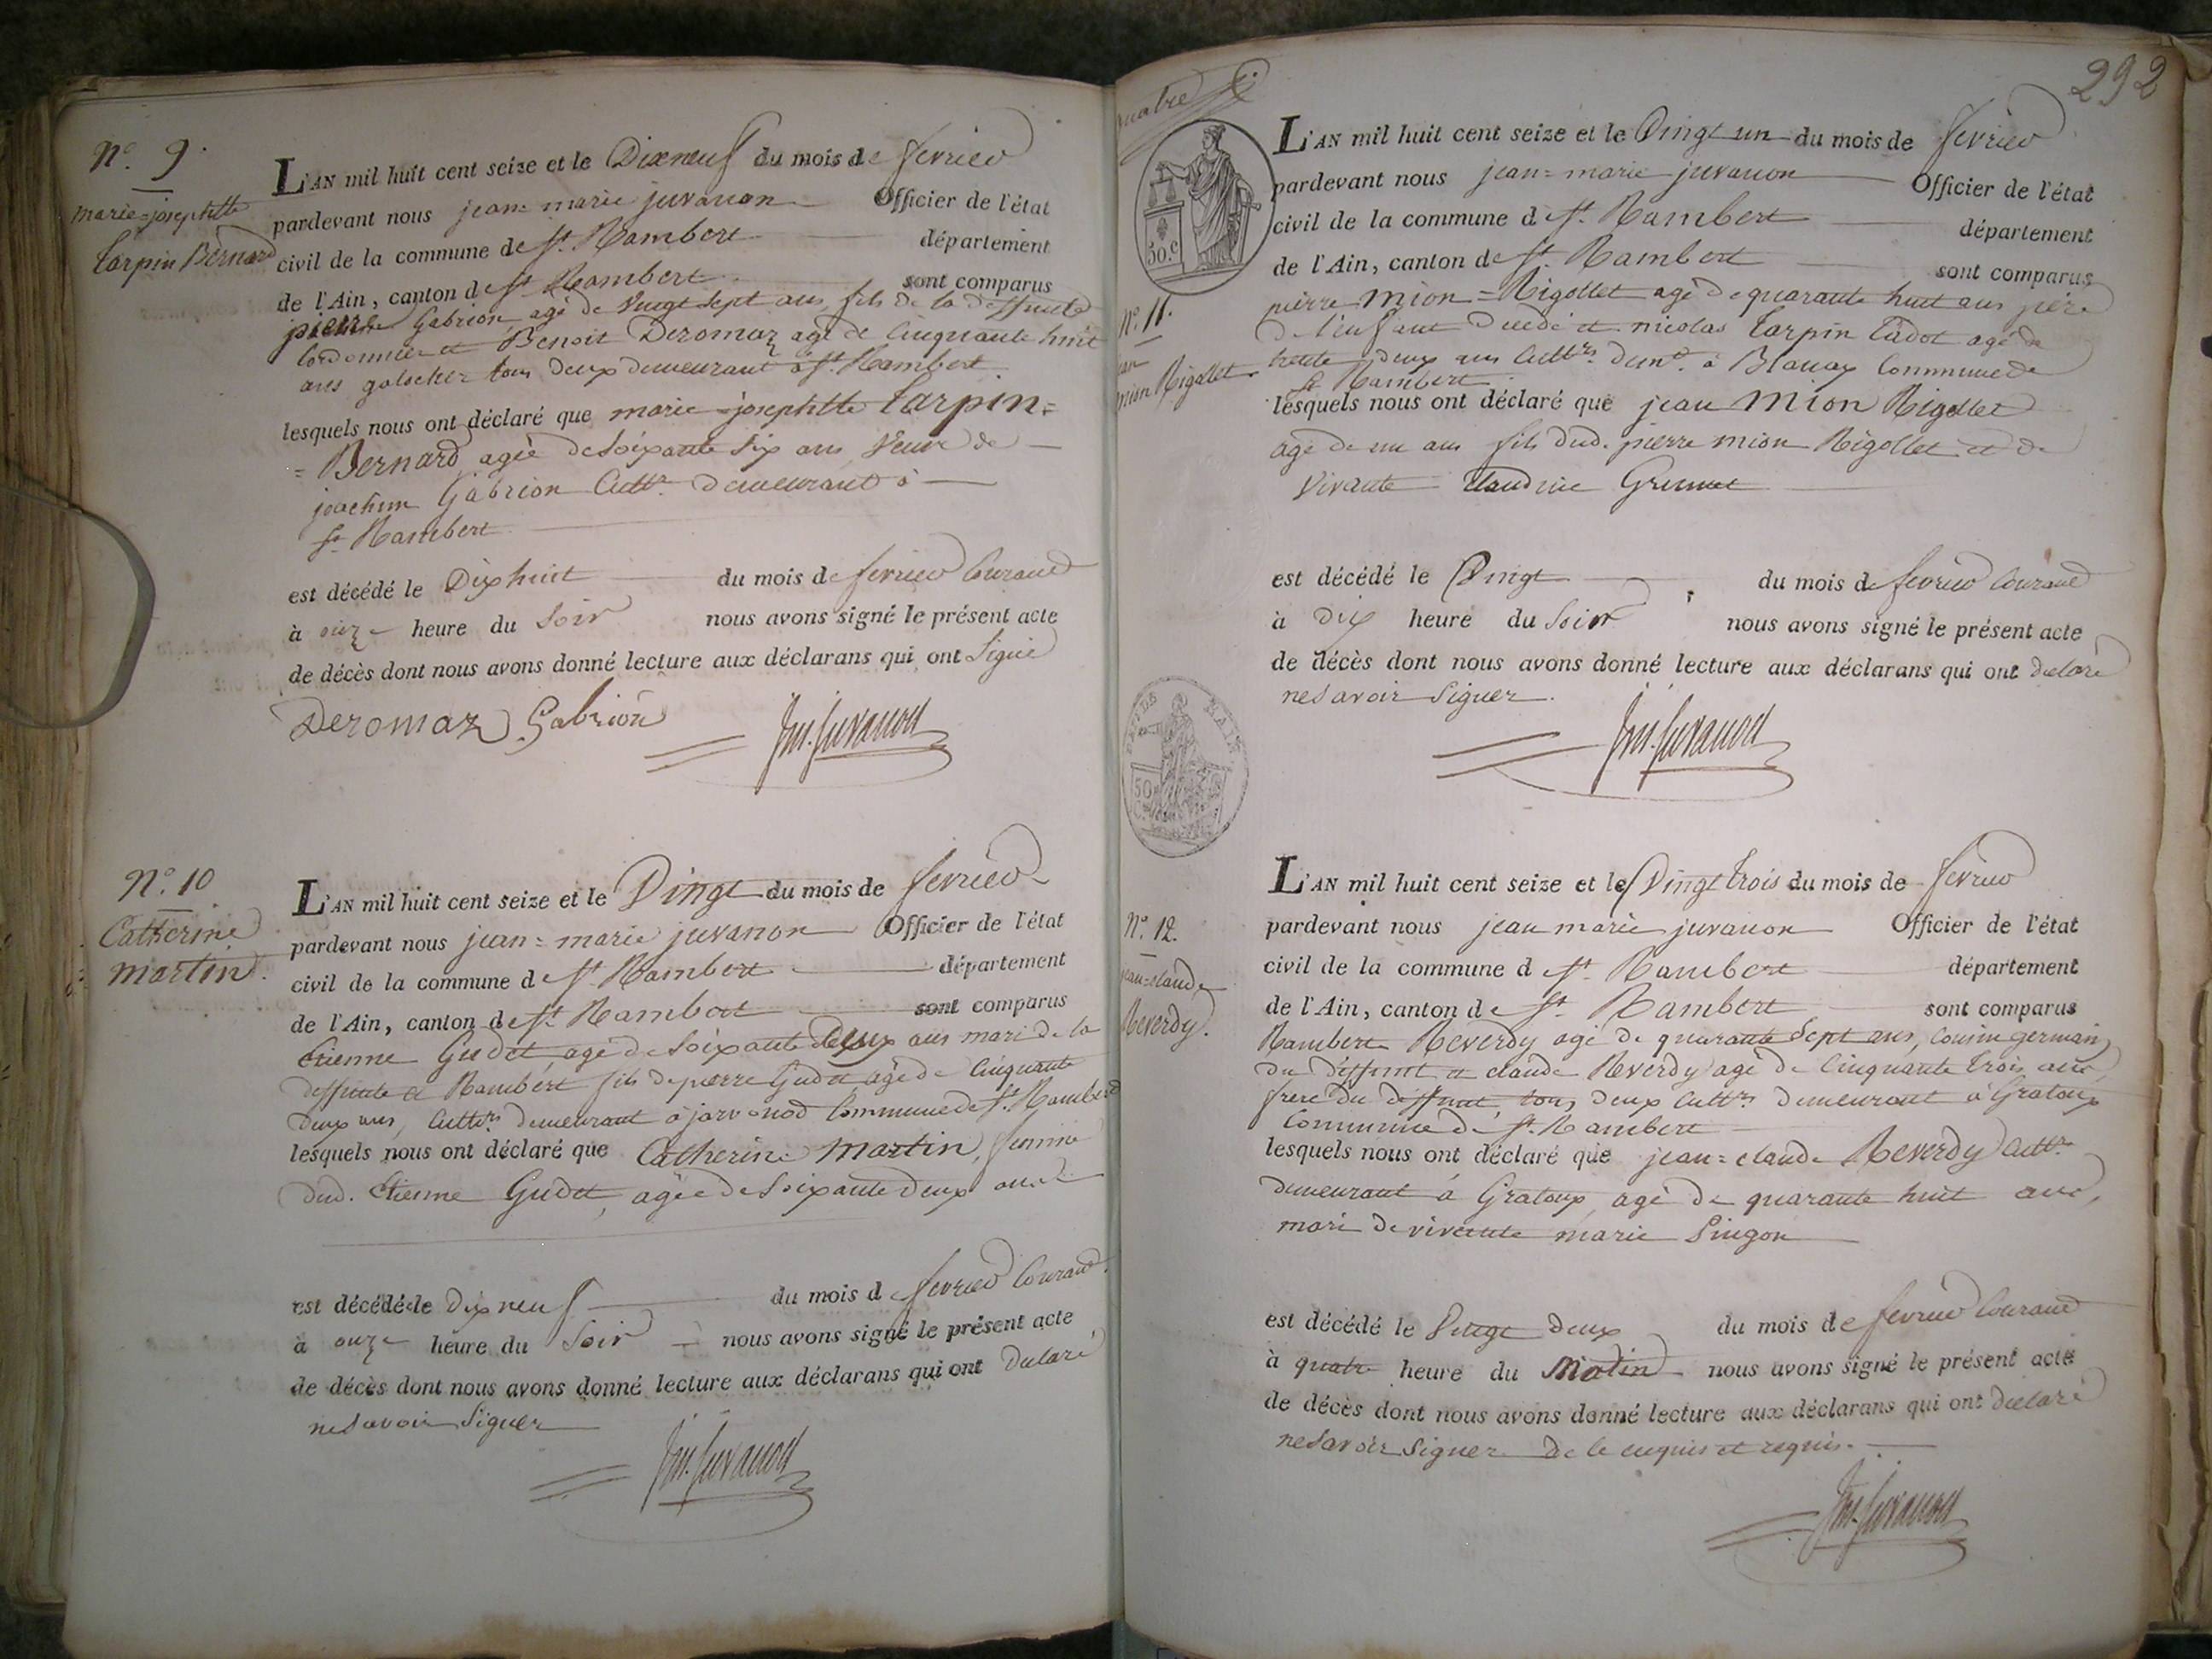 N.º 9.
marie=josephtte
Tarpin Bernard
L'AN mil huit cent seize et le Dixneuf du mois de fevrier
pardevant nous jean=marie juvanon Officier de l'état
civil de la commune de St. Rambert département
de l'Ain, canton de St Rambert sont comparus
pierre Gabrion agé de vingt sept ans, fils de la deffunte
Cordonnier et Benoit Deromaz agé de Cinquante huit
ans galocher tous deux demeurant à St. Rambert
lesquels nous ont déclaré que marie=josephtte Tarpin=
=Bernard agée de soixante six ans veuve de
joachim Gabrion Cultr. demeurant à
St Rambert
est décédé le Dixhuit du mois de fevrier Courant
à onze heure du Soir nous avons signé le présent acte
de décès dont nous avons donné lecture aux déclarans qui ont Signé
Deromaz Gabrion Jm. Juvanon
N.º 10
Catherine
martin.
L'AN mil huit cent seize et le Vingt du mois de fevrier
pardevant nous jean=marie juvanon Officier de l'état
civil de la commune de St. Rambert département
de l'Ain, canton de St. Rambert sont comparus
Etienne Gudet, agé de Soixante deux ans mari de la
deffunte et Rambert fils de pierre Gudet agé de Cinquante
deux ans, Cultrs. demeurant à jarvonod Commune de St. Rambert
lesquels nous ont déclaré que Catherine martin, femme
dud. Etienne Gudet, agée de soixante deux ans
est décédé le dix neuf du mois de fevrier Courant.
à onze heure du Soir nous avons signé le présent acte
de décès dont nous avons donné lecture aux déclarans qui ont declaré
ne savoir Signer
Jm. Juvanon
292
quatre
50.c
L'AN mil huit cent seize et le Vingt un du mois de fevrier
pardevant nous jean=marie juvanon Officier de l'état
civil de la commune de St. Rambert département
de l'Ain, canton de St. Rambert sont comparus
N.º 11.
jean
mion Rigollet
pierre mion=Rigollet agé de quarante huit ans père
de l'enfant decedé et nicolas Tarpin Cadot agé de
trente deux ans Cultrs. demt. à Blanaz Commune de
St Rambert
lesquels nous ont déclaré que jean mion Rigollet
agé de un ans fils dud. pierre mion Rigollet et de
vivante Claudine Grumet
est décédé le Vingt du mois de fevrier Courant
à dix heure du Soir nous avons signé le présent acte
de décès dont nous avons donné lecture aux déclarans qui ont declaré
ne savoir Signer.
Jm. Juvanon
50
L'AN mil huit cent seize et le Vingt trois du mois de fevrier
N.º 12.
jean=claude
Reverdy.
pardevant nous jean marie juvanon Officier de l'état
civil de la commune de St. Rambert département
de l'Ain, canton de St. Rambert sont comparus
Rambert Reverdy agé de quarante Sept ans, Cousin germain
du deffunt et claude Reverdy agé de Cinquante trois ans
frere du deffunt, tous deux Cultrs. demeurant à Gratoux
Commune de St. Rambert
lesquels nous ont déclaré que jean=claude Reverdy Cultr.
demeurant à Gratoux, agé de quarante huit ans,
mari de vivante marie Pingon
est décédé le Vingt deux du mois de fevrier Courant
à quatre heure du Matin nous avons signé le présent acte
de décès dont nous avons donné lecture aux déclarans qui ont declaré
ne savoir Signer de ce enquis et requis.
Jm. Juvanon